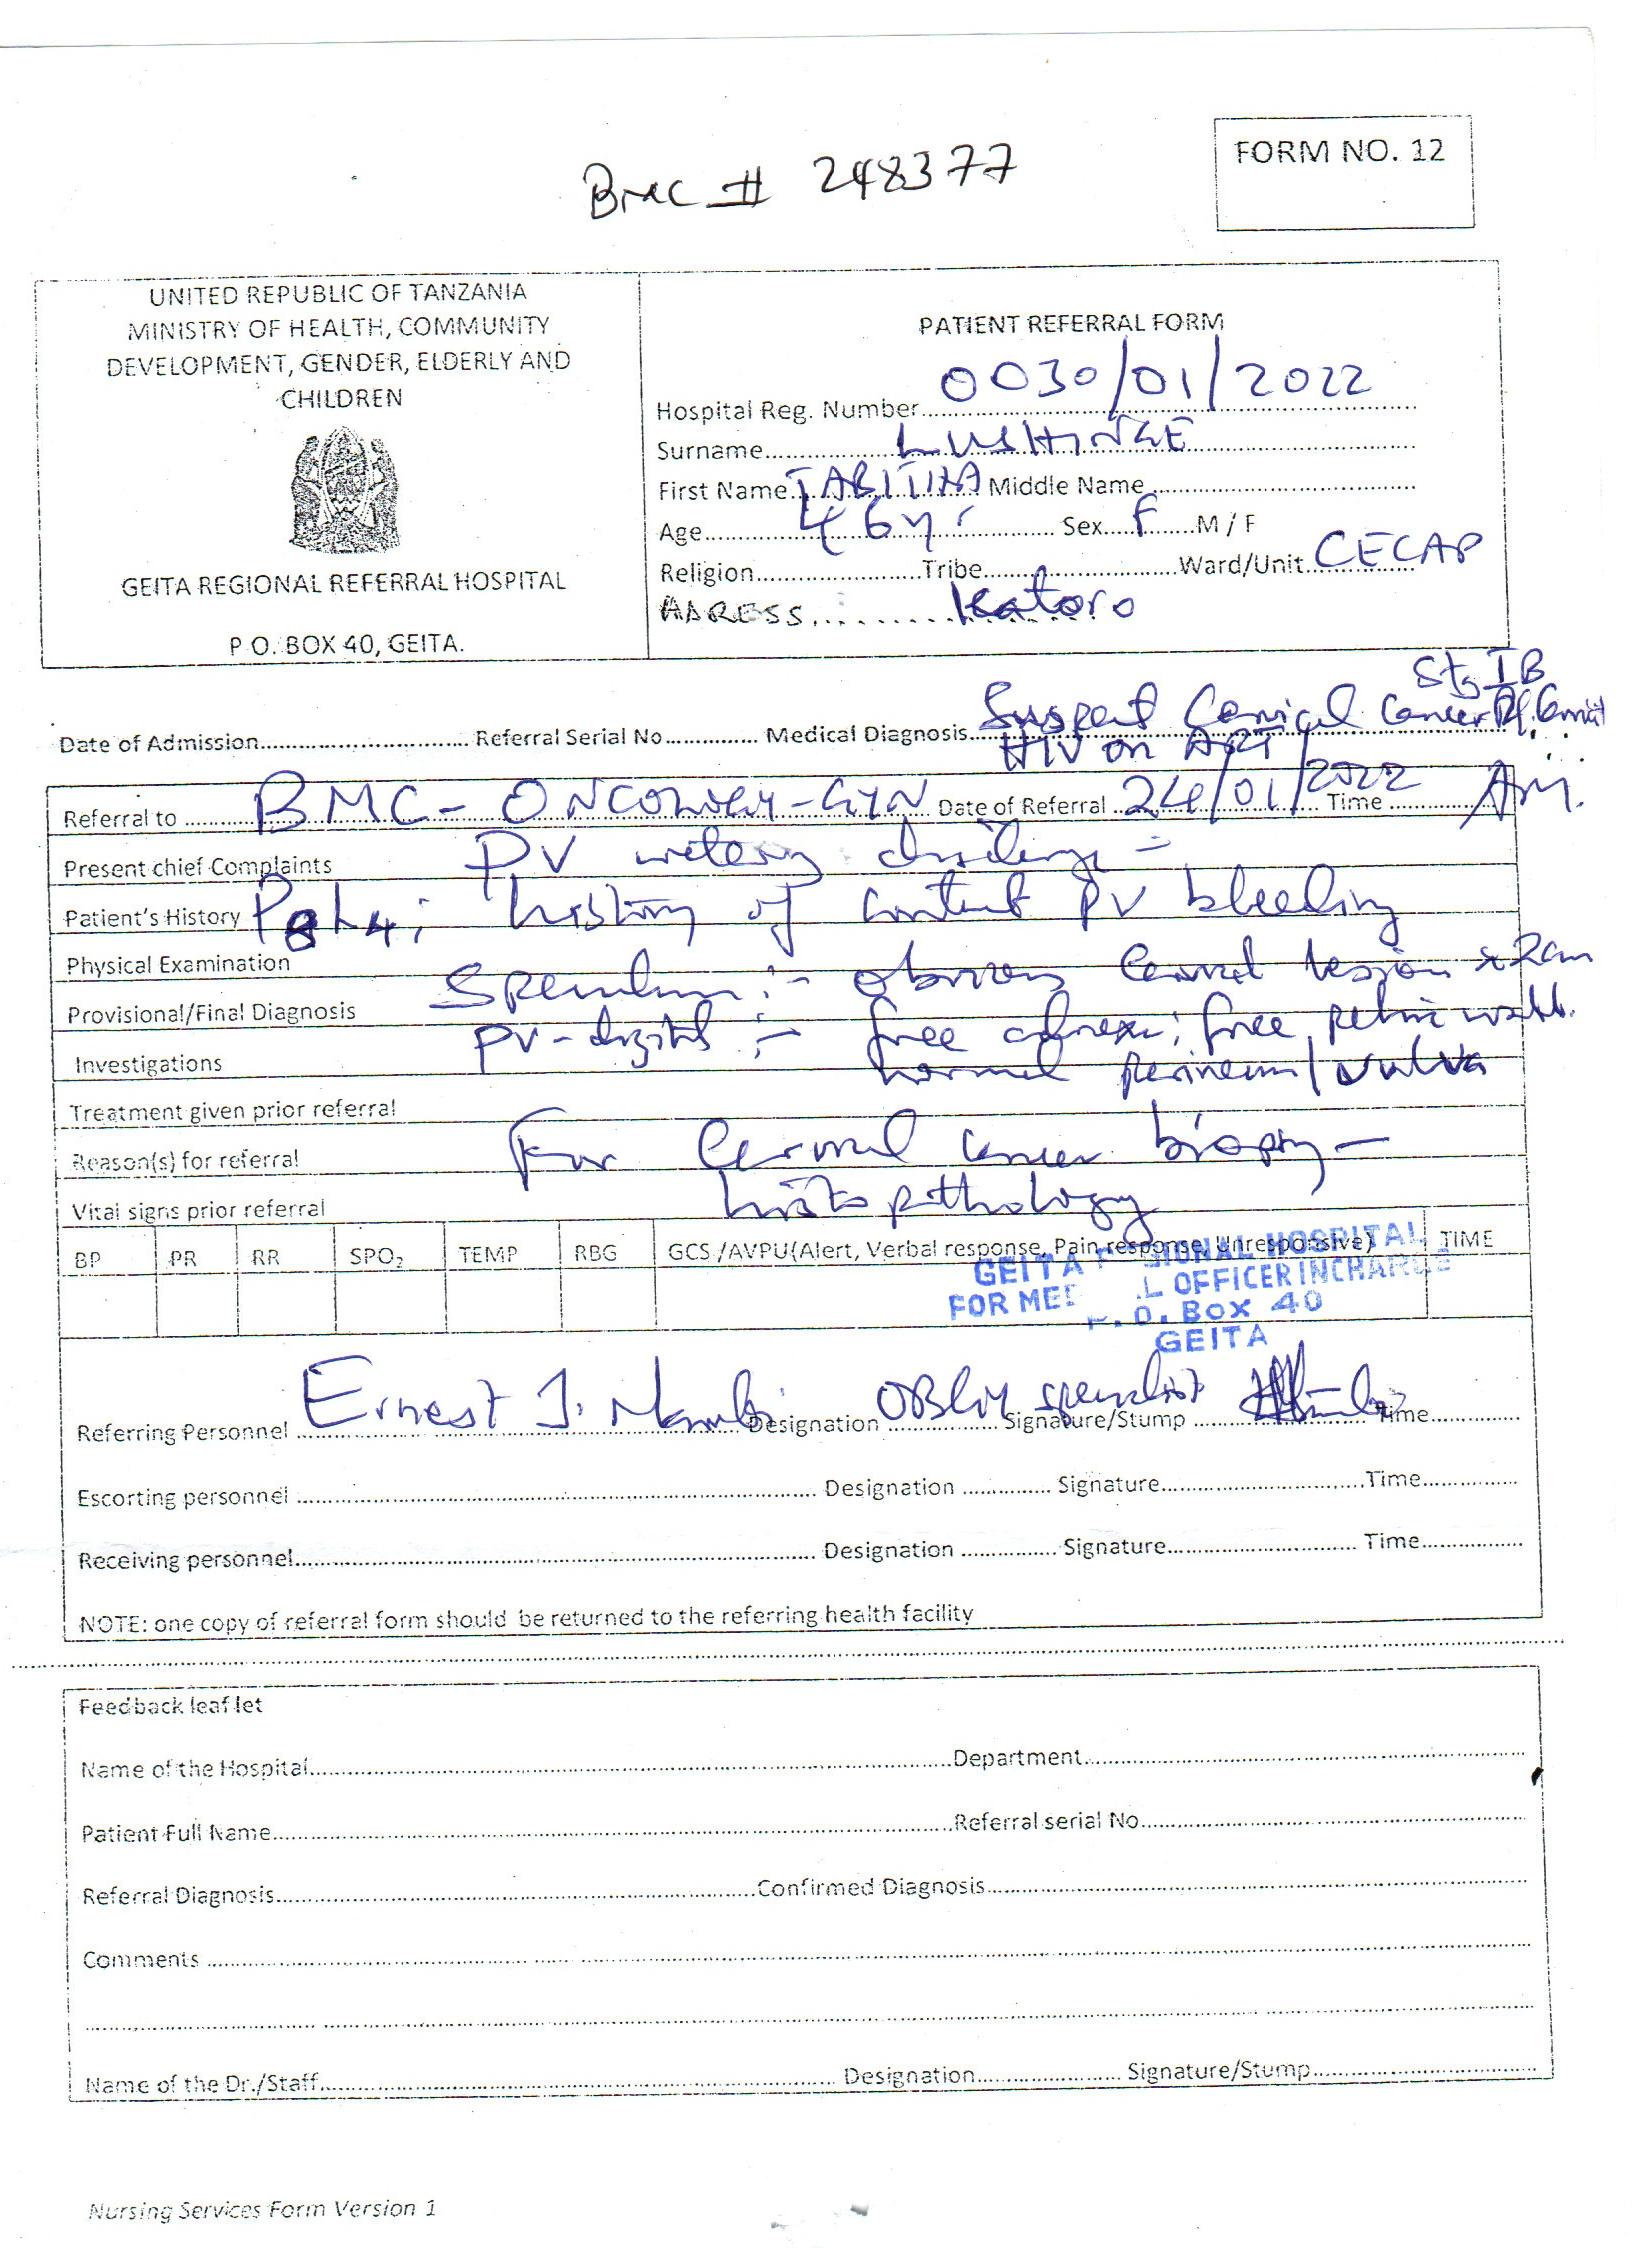 BMC # 248377
FORM NO. 12
UNITED REPUBLIC OF TANZANIA
MINISTRY OF HEALTH, COMMUNITY
DEVELOPMENT, GENDER, ELDERLY AND
CHILDREN
GEITA REGIONAL REFERRAL HOSPITAL
P O. BOX 40, GEITA.
PATIENT REFERRAL FORM
Hospital Reg. Number 0030/01/2022
Surname LUSHINGE
First Name TABITHA Middle Name
Age 46y Sex F M / F
Religion Tribe Ward/Unit CECAP
ADRESS Katoro
Stg IB
Date of Admission Referral Serial No Medical Diagnosis Suspect Cervical Cancer
HIV on ART
Referral to BMC - ONCOLOGY - GYN Date of Referral 24/01/2022 Time AM.
Present chief Complaints PV watery discharge -
Patient's History history of contact PV bleeding
Physical Examination Speculum :- obvious cervical lesion 2cm
Provisional/Final Diagnosis PV - digital :- free adnexa; free pelvic walls.
Investigations normal perineum / vulva
Treatment given prior referral
Reason(s) for referral For Cervical cancer biopsy -
Vital signs prior referral histopathology
BP PR RR SPO₂ TEMP RBG GCS /AVPU(Alert, Verbal response, Pain response, Unresponsive) TIME
GEITA REGIONAL HOSPITAL
FOR MEDICAL OFFICER INCHARGE
P. O. BOX 40
GEITA
Referring Personnel Ernest J. Designation OBGY specialist Signature/Stump Time
Escorting personnel Designation Signature Time
Receiving personnel Designation Signature Time
NOTE: one copy of referral form should be returned to the referring health facility
Feedback leaflet
Name of the Hospital Department
Patient Full Name Referral serial No
Referral Diagnosis Confirmed Diagnosis
Comments
Name of the Dr./Staff Designation Signature/Stump
Nursing Services Form Version 1